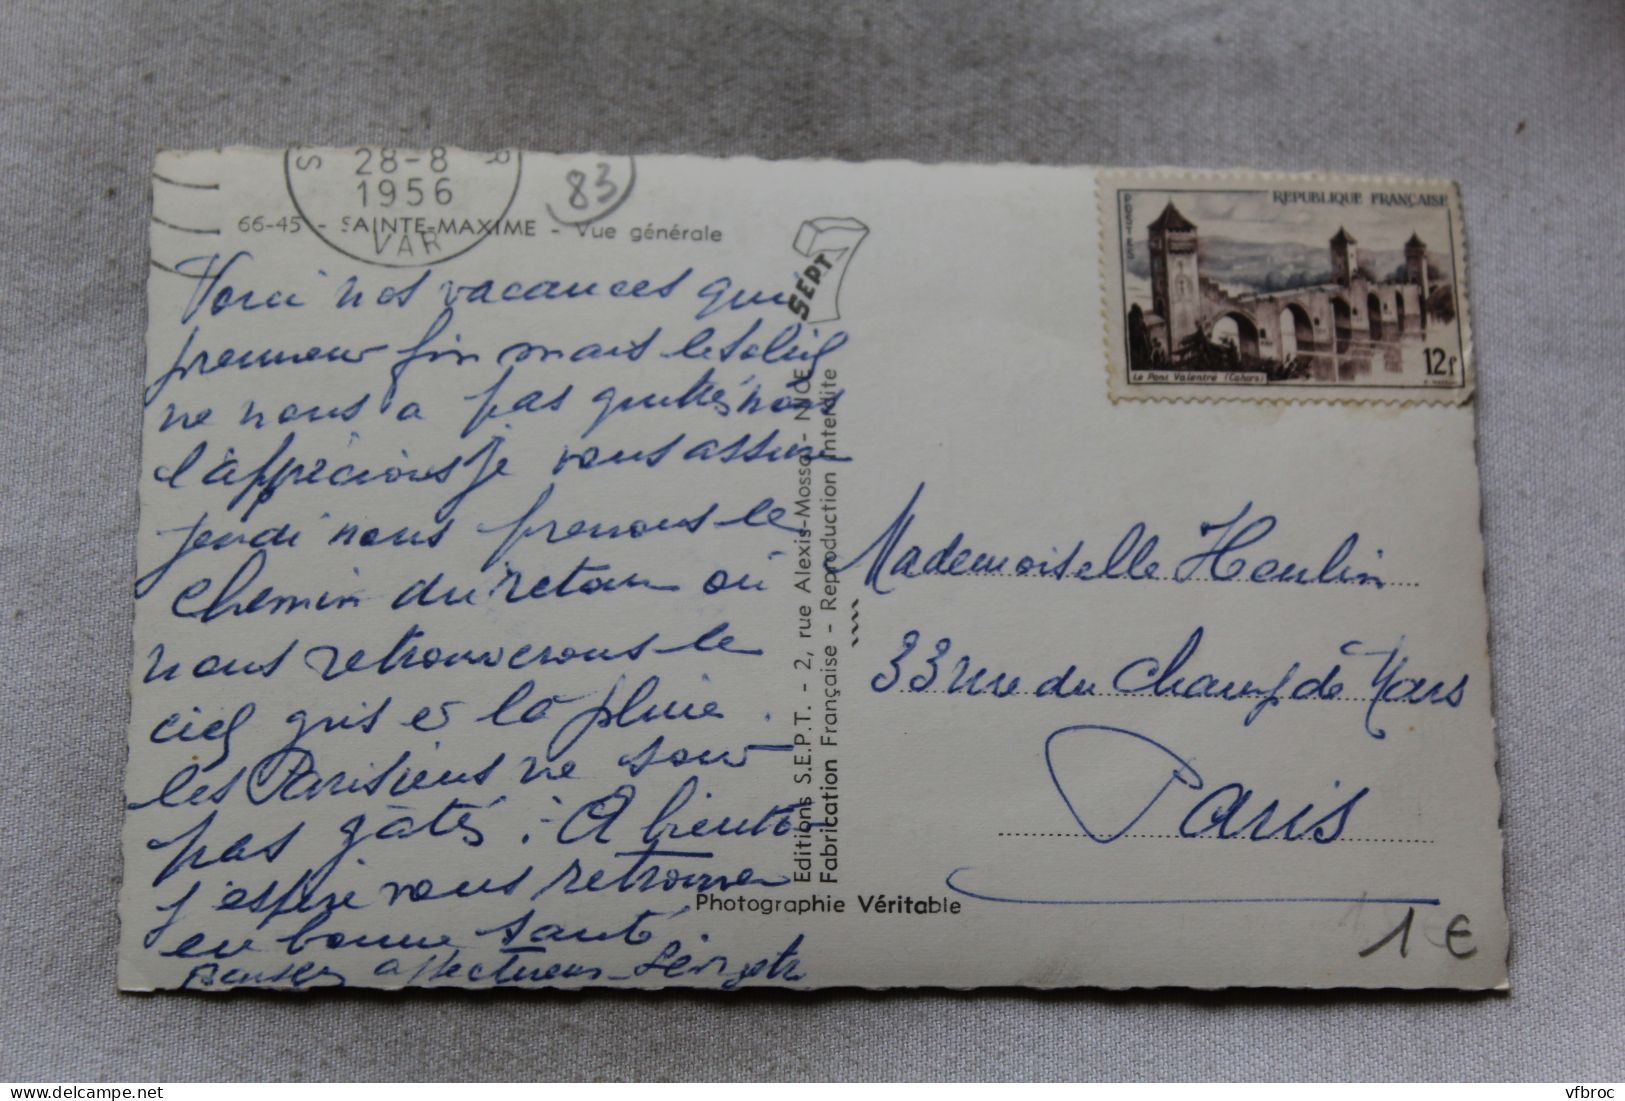 28-8
1956
VAR
83
66-45 - SAINTE-MAXIME - Vue générale
Voici nos vacances qui
prennent fin mais le soleil
ne nous a pas quittés nous
l'apprécions je vous assure
jeudi nous prenons le
chemin du retour où
nous retrouverons le
ciel gris et la pluie.
les Parisiens ne sont
pas gâtés. A bientôt
j'espère vous retrouver
en bonne santé
affectueuses
SEPT
Editions S.E.P.T. - 2, rue Alexis-Mossa - NICE
Fabrication Française - Reproduction Interdite
Photographie Véritable
POSTES
REPUBLIQUE FRANÇAISE
Le Pont Valentré (Cahors)
12f
Mademoiselle Heulin
33 rue du Champ de Mars
Paris
1 €
vfbroc